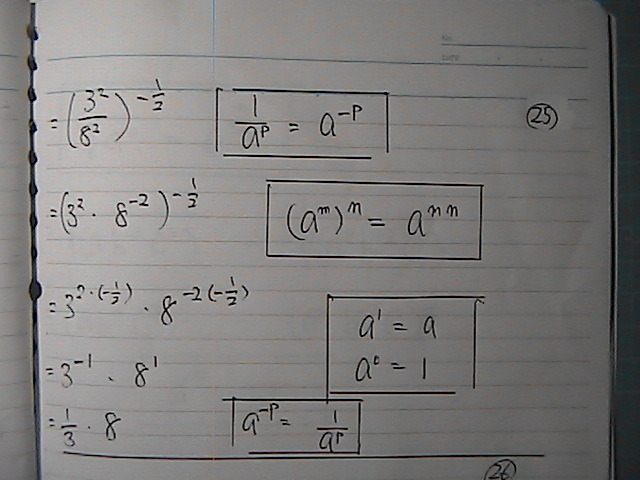 No.
DATE
= (3²/8²)^(-1/2)   1/a^p = a^(-p)   (25)
= (3² · 8^(-2))^(-1/2)   (a^m)^n = a^(nn)
= 3^(2·(-1/2)) · 8^(-2(-1/2))   a¹ = a
= 3^(-1) · 8¹   a⁰ = 1
= 1/3 · 8   a^(-p) = 1/a^p
(26)